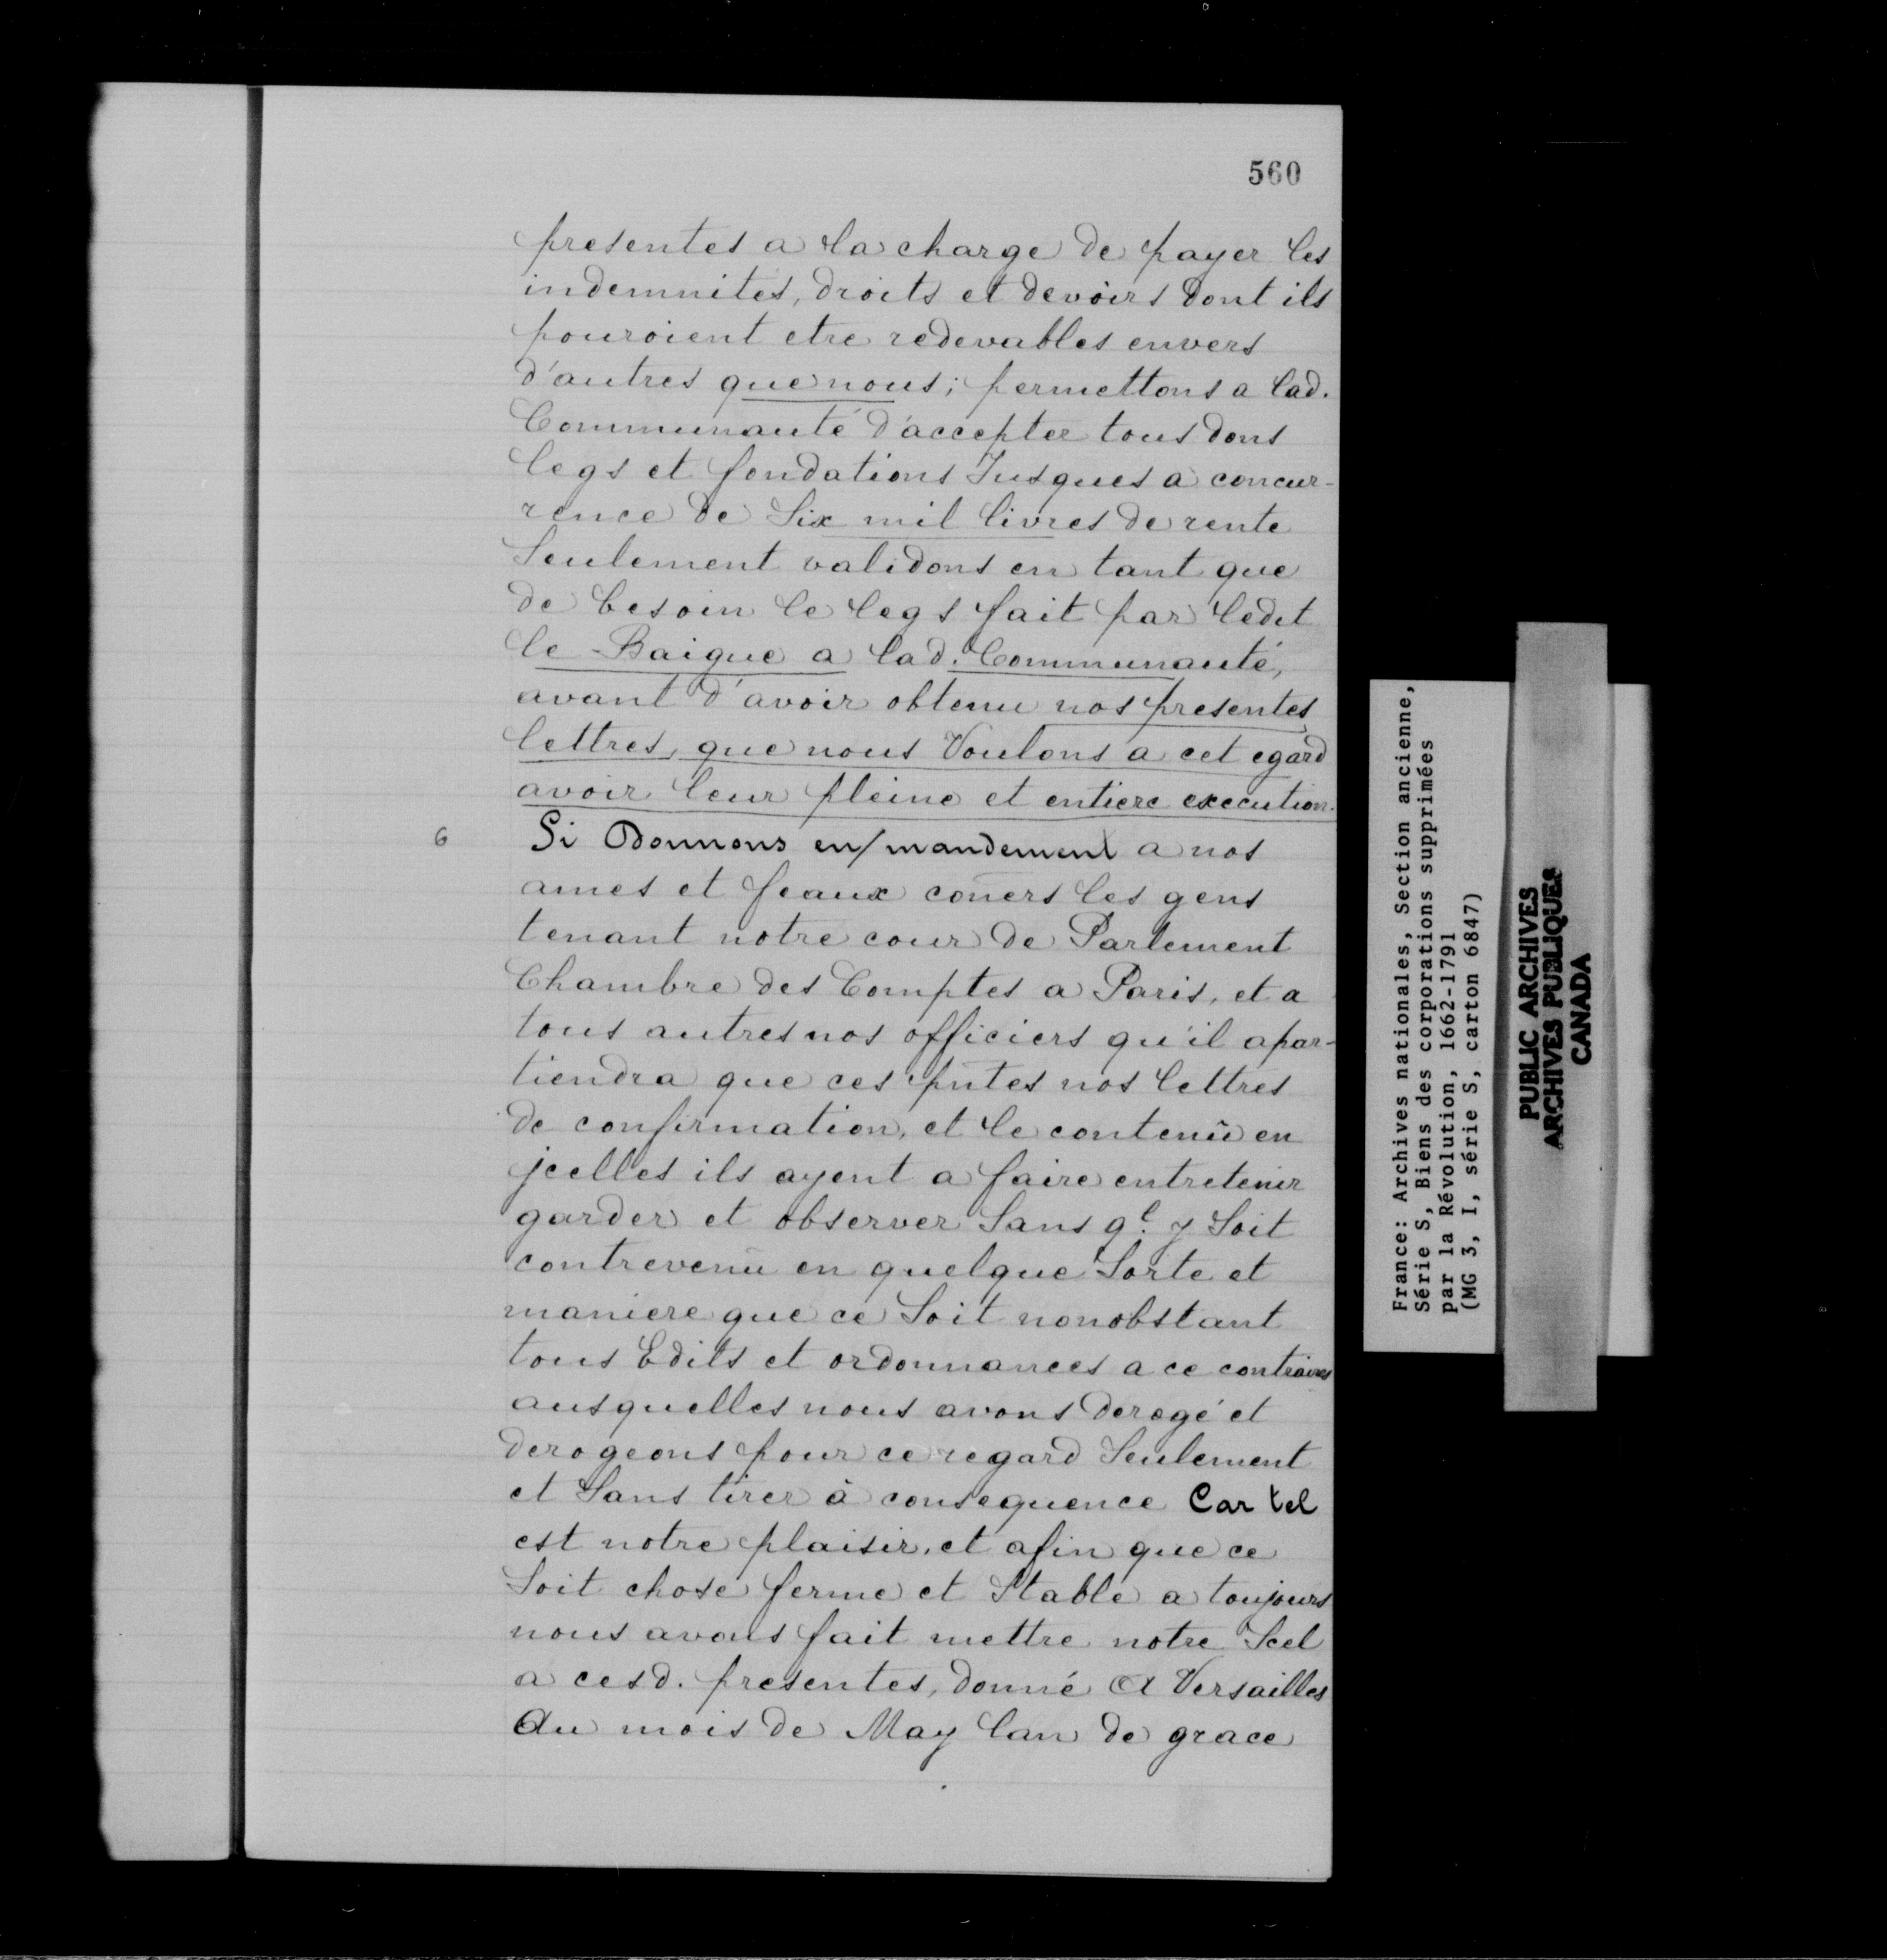 560
presentes a la charge de payer les
indemnites, droits et devoirs dont ils
pouroient etre redevables envers
d'autres que nous; permettons a lad.
Communauté d'accepter tous dons
legs et fondations Jusques a concur-
rence de Six mil livres de rente
Seulement validons en tant que
de besoin le legs fait par ledit
le Baigue a lad. Communauté,
avant d'avoir obtenu nos presentes
lettres, que nous Voulons a cet egard
avoir leur pleine et entiere execution.
6 Si Donnons en/mandement a nos
ames et feaux coners les gens
tenant notre cour de Parlement
Chambre des Comptes a Paris, et a
tous autres nos officiers qu'il apar-
tiendra que ces pntes nos lettres
de confirmation, et le contenû en
jcelles ils ayent a faire entretenir
garder et observer Sans ql. y Soit
contrevenû en quelque Sorte et
maniere que ce Soit nonobstant
tous Edits et ordonnances a ce contraires
ausquelles nous avons derogé et
derogeons pour ce regard Seulement
et Sans tirer à consequence Car tel
est notre plaisir, et afin que ce
Soit chose ferme et Stable a toujours
nous avons fait mettre notre Scel
a cesd. presentes, donné A Versailles
Au mois de May lan de grace
France: Archives nationales, Section ancienne,
Série S, Biens des corporations supprimées
par la Révolution, 1662-1791
(MG 3, I, série S, carton 6847)
PUBLIC ARCHIVES
ARCHIVES PUBLIQUES
CANADA